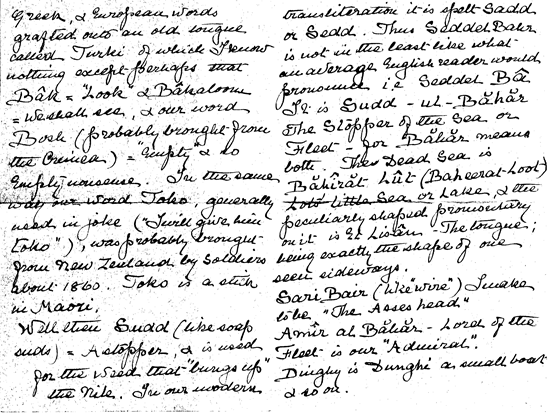 Greek, & European words
grafted onto an old tongue
called Turki of which I know
nothing except perhaps that
Bâk = "Look" & Bâkaloom
= we shall see, & our word
Bosh (probably brought from
the Crimea) = "Empty" & so
Empty nonsense. In the same
way our word Toko, generally
used in joke ("I will give him
toko"), was probably brought
from New Zealand by Soldiers
about 1860. Toko is a stick
in Maori.
Well then Sudd (like soap
suds) = A stopper, & is used
for the weed that "bungs up"
the Nile. In our modern
transliteration it is spelt Sadd
or Sedd. Thus Seddel Bahr
is not in the least like what
an average English reader would
pronounce i.e. Seddel Bâ
It is Sudd - ul - Băhăr
The Stopper of the Sea or
Fleet - for Băhăr means
both. The Dead Sea is
Băhîrăt Lût (Baheerat-Loot)
Lots little Sea or Lake, & the
peculiarly shaped promontory
on it is El Lisân The tongue;
being exactly the shape of one
seen sideways.
Sari Bair (like "wire") I make
to be "The Asses head"
Amîr al Băhăr - Lord of the
Fleet - is our "Admiral".
Dinghy is Dunghi a small boat
& so on.